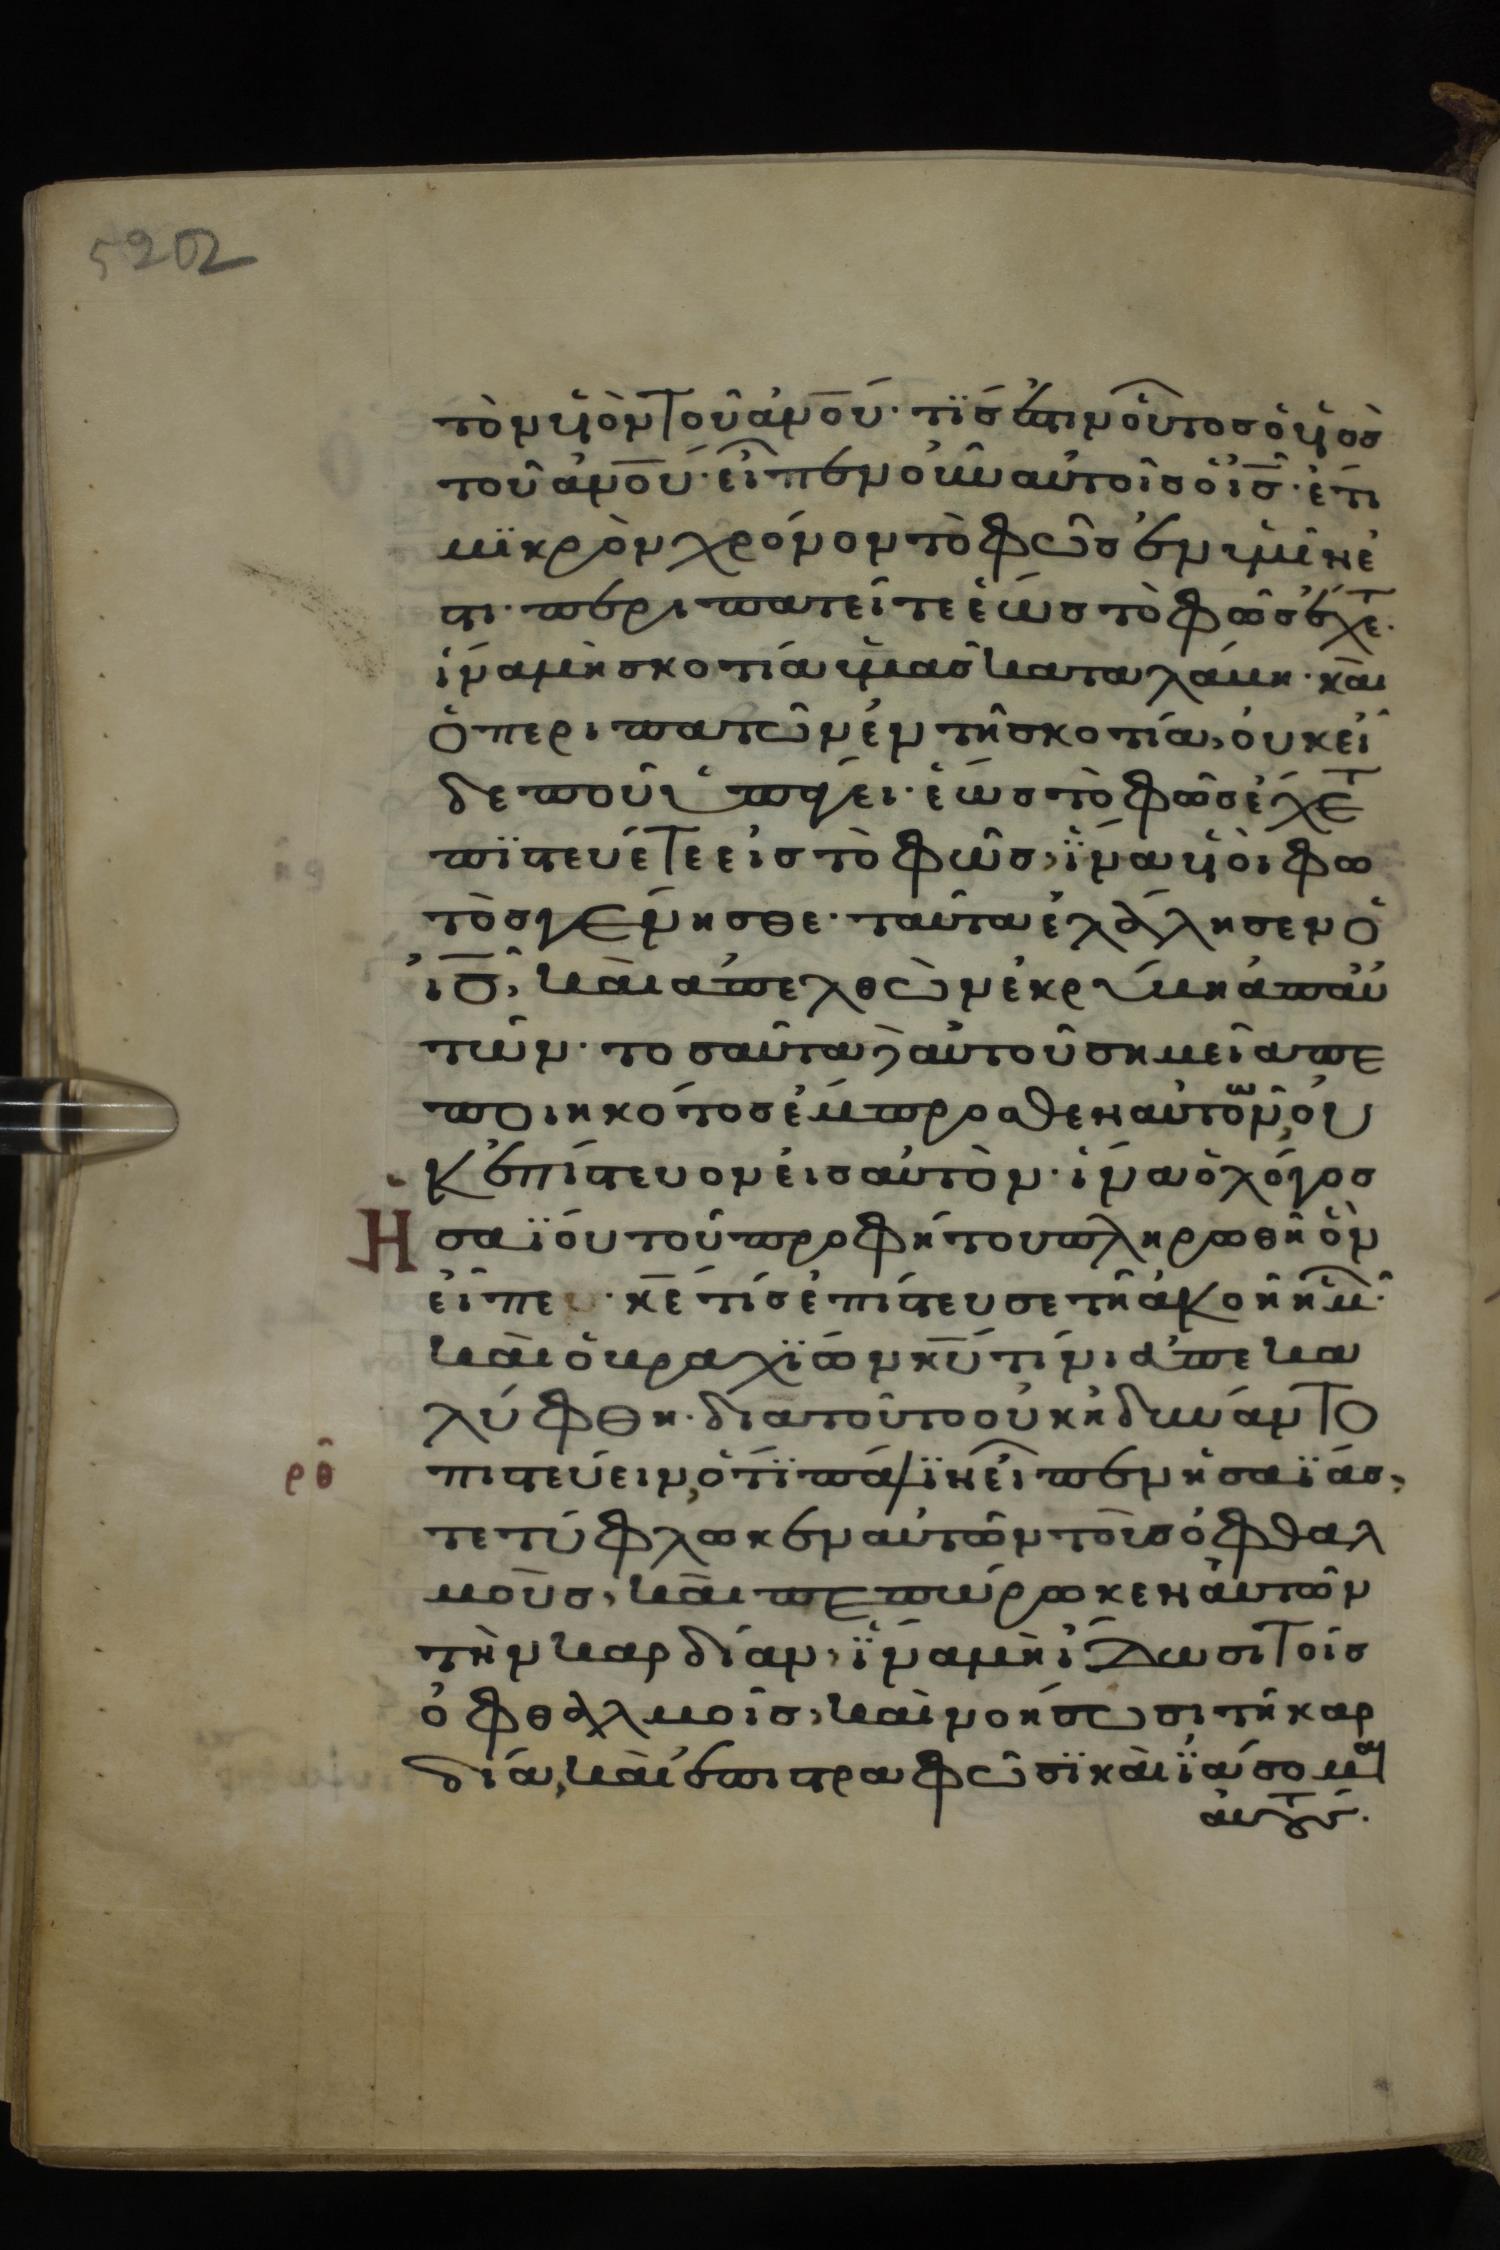 τὸν ὑιὸν τοῦ ἀνο̅ύ· τΐς ἐστιν οὗτος ὁ ὑιὸς
τοῦ ἀνο̅ύ· εἶπεν οὖν αὐτοῖς ὁ ι̅ς̅· ἔτι
μϊκρὸν χρόνον τὸ φῶς ἐν ὑμῖν ἐ
στι· περιπατεῖτε ἕως τὸ φῶς ἔχετ̅ε·
ἱνα μὴ σκοτία ὑμᾶς καταλάμη· καὶ
ὁ περιπατῶν ἐν τῆ σκοτία, ὀυκ εἶ
δε ποῦ ὑπάγει· ἕως τὸ φῶς ἔχετ̅ε
πϊστεύετε εἰς τὸ φῶς, ἵνα ὑιοὶ φω
τὸς γένησθε· ταῦτα ἐλάλησεν ὁ
ι̅ς̅, καὶ ἀπελθὼν ἐκρύμη ἀπ αὐ
τῶν· τοσαῦτα δὲ αὐτοῦ σημεῖα πε
ποιηκότος ἔμπροσθεν αὐτῶν, οὐ
κ ἐπίστευον εἰς αὐτὸν· ἱνα ὁ λόγος
Ησαϊόυ τοῦ προφήτου πληρωθῆ ὃν
εἶπε· κ̅ε̅ τίς ἐπίστευσε τῆ ἀκοῆ ἡμ̑·
καὶ ὁ βραχΐων κ̅υ̅ τίνι ἀπεκα
λύφθη· διατοῦτο οὐκ ἠδυνάντο
πιστεύειν, ὅτϊ πάλϊν εἶπεν ἡσαΐας,
ρθ
τετύφλωκεν αὐτῶν τοὺς ὀφθαλ
μοὺς, καὶ πεπώρωκεν αὐτῶν
τὴν καρδίαν, ἵνα μὴ ἴδωσι τοῖς
ὀφθαλμοῖς, καὶ νοήσωσι τῆ καρ
δία, καὶ ἐπιστραφῶσϊ καὶ ϊάσομαι
ἀυτόυς.